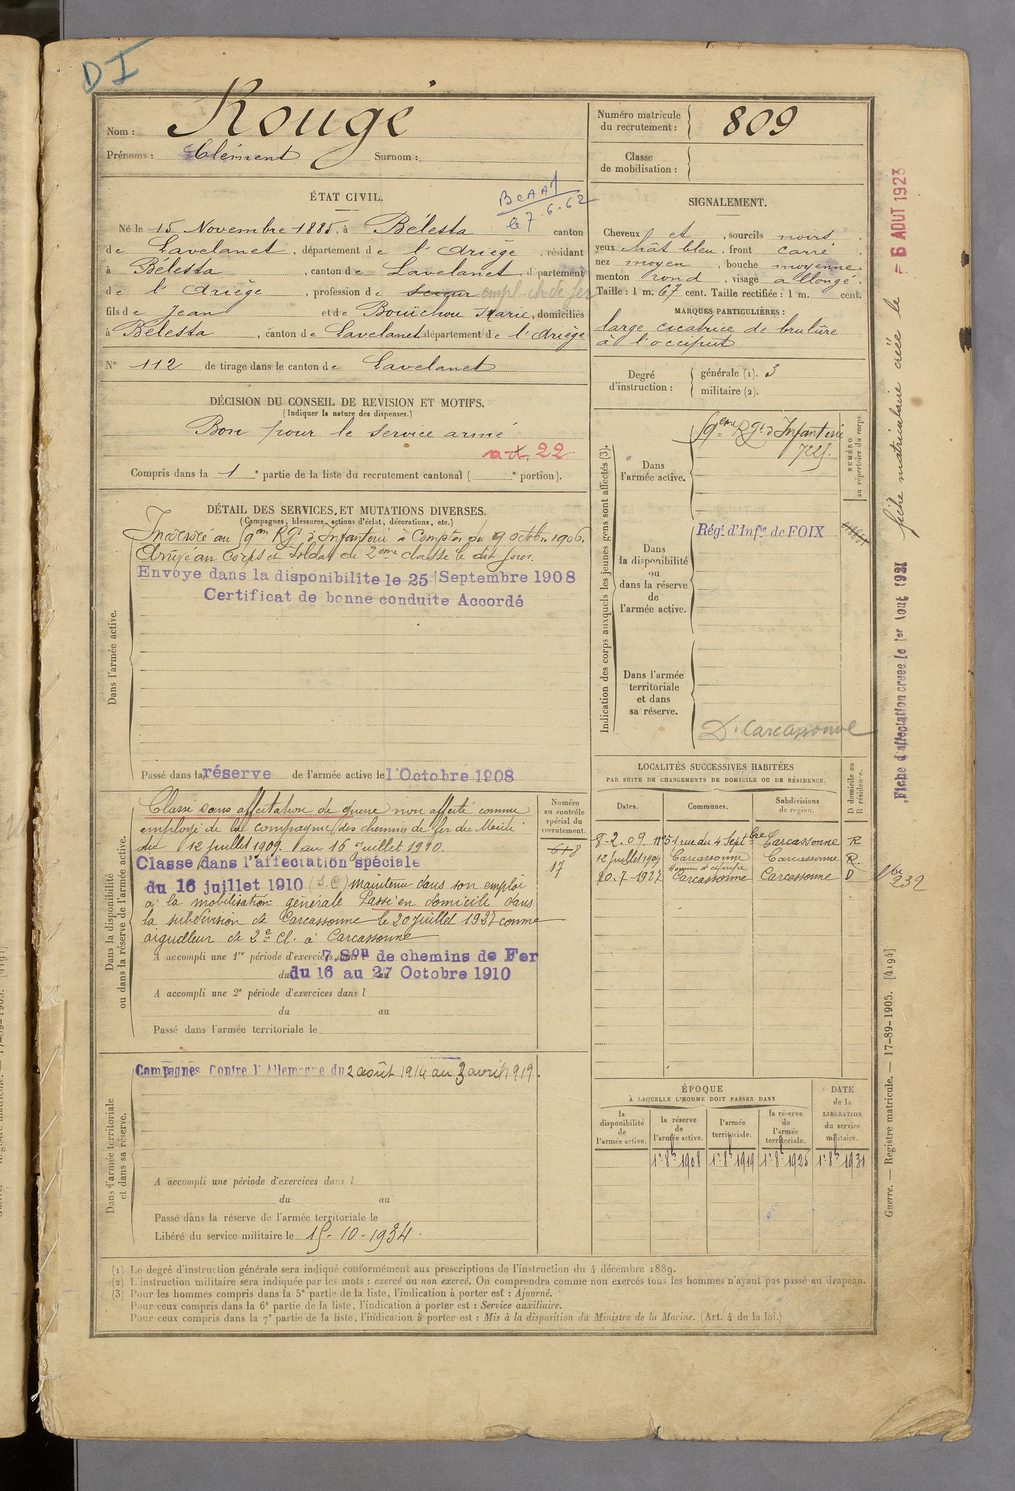 DI
Nom : Rougé
Prénoms : Clément Surnom :
Numéro matricule du recrutement : 809
Classe de mobilisation :
ÉTAT CIVIL.
BCAAM
le 7-6-62
Né le 15 Novembre 1885, à Bélesta canton
de Lavelanet, département de l'Ariège, résidant
à Bélesta, canton de Lavelanet, département
de l'Ariège, profession de scieur empl. ch de fer
fils de Jean et de Bouichou Marie, domiciliés
à Bélesta, canton de Lavelanet département de l'Ariège
N° 112 de tirage dans le canton de Lavelanet
DÉCISION DU CONSEIL DE REVISION ET MOTIFS.
(Indiquer la nature des dispenses.)
Bon pour le service armé
art. 22
Compris dans la 1 e partie de la liste du recrutement cantonal ( e portion).
SIGNALEMENT.
Cheveux et, sourcils noirs.
yeux chât bleu, front carré
nez moyen, bouche moyenne
menton rond, visage allongé.
Taille : 1 m. 67 cent. Taille rectifiée : 1 m. cent.
MARQUES PARTICULIÈRES :
large cicatrice de brulure
à l'occiput
Degré d'instruction : générale (1). 3
militaire (2).
DÉTAIL DES SERVICES, ET MUTATIONS DIVERSES.
(Campagnes, blessures, actions d'éclat, décorations, etc.)
Dans l'armée active.
Incorporé au 59eme Rgt d'Infanterie à Compter du 9 octobre 1906.
Arrivé au Corps et Soldat de 2eme classe le dit jour.
Envoye dans la disponibilite le 25 Septembre 1908
Certificat de bonne conduite Accordé
Passé dans la réserve de l'armée active le 1 Octobre 1908
Indication des corps auxquels les jeunes gens sont affectés (3).
NUMÉRO au répertoire du corps.
Dans l'armée active.
59eme Rgt d'Infanterie
Dans la disponibilité ou dans la réserve de l'armée active.
Régt d'Infie de FOIX
Dans l'armée territoriale et dans sa réserve.
Dt Carcassonne
Dans la disponibilité ou dans la réserve de l'armée active.
Numéro au contrôle spécial du recrutement.
618
17
Classé sans affectation de guerre non affecté comme
employé de la compagnie des chemins de fer du Midi
du 12 juillet 1909. au 16 juillet 1910.
Classé dans l'affectation spéciale
du 16 juillet 1910 (S.C) maintenu dans son emploi
à la mobilisation générale Passé en domicile dans
la subdivision de Carcassonne le 20 juillet 1927 comme
aiguilleur de 2e Cl. à Carcassonne
A accompli une 1re période d'exercices dans 7 Son de chemins de Fer
du 16 au 27 Octobre 1910
A accompli une 2e période d'exercices dans l
du au
Passé dans l'armée territoriale le
LOCALITÉS SUCCESSIVES HABITÉES
PAR SUITE DE CHANGEMENTS DE DOMICILE OU DE RÉSIDENCE.
D domicile ou R résidence.
Dates. Communes. Subdivisions de région.
8-2-09 n°51 rue du 4 Septbre Carcassonne R
12 Juillet 1909 Carcassonne Carcassonne R
20-7-1927 Carcassonne Carcassonne D
232
Dans l'armée territoriale et dans sa réserve.
Campagnes Contre l'Allemagne du 2 août 1914 au 3 avril 1919.
A accompli une période d'exercices dans l
du au
Passé dans la réserve de l'armée territoriale le
Libéré du service militaire le 15-10-1934.
ÉPOQUE À LAQUELLE L'HOMME DOIT PASSER DANS
DATE de la LIBÉRATION du service militaire.
la disponibilité de l'armée active.
la réserve de l'armée active.
l'armée territoriale.
la réserve de l'armée territoriale.
1er 8bre 1908 1er 8bre 1919 1er 8bre 1925 1er 8bre 1931
(1) Le degré d'instruction générale sera indiqué conformément aux prescriptions de l'instruction du 4 décembre 1889.
(2) L'instruction militaire sera indiquée par les mots : exercé ou non exercé. On comprendra comme non exercés tous les hommes n'ayant pas passé au drapeau.
(3) Pour les hommes compris dans la 5e partie de la liste, l'indication à porter est : Ajourné.
Pour ceux compris dans la 6e partie de la liste, l'indication à porter est : Service auxiliaire.
Pour ceux compris dans la 7e partie de la liste, l'indication à porter est : Mis à la disposition du Ministre de la Marine. (Art. 4 de la loi.)
fiche matriculaire créée le - 6 AOUT 1923
Fiche d'affectation créée le 1er Aout 1931
Guerre. — Registre matricule. — 17-89-1905. [4194]